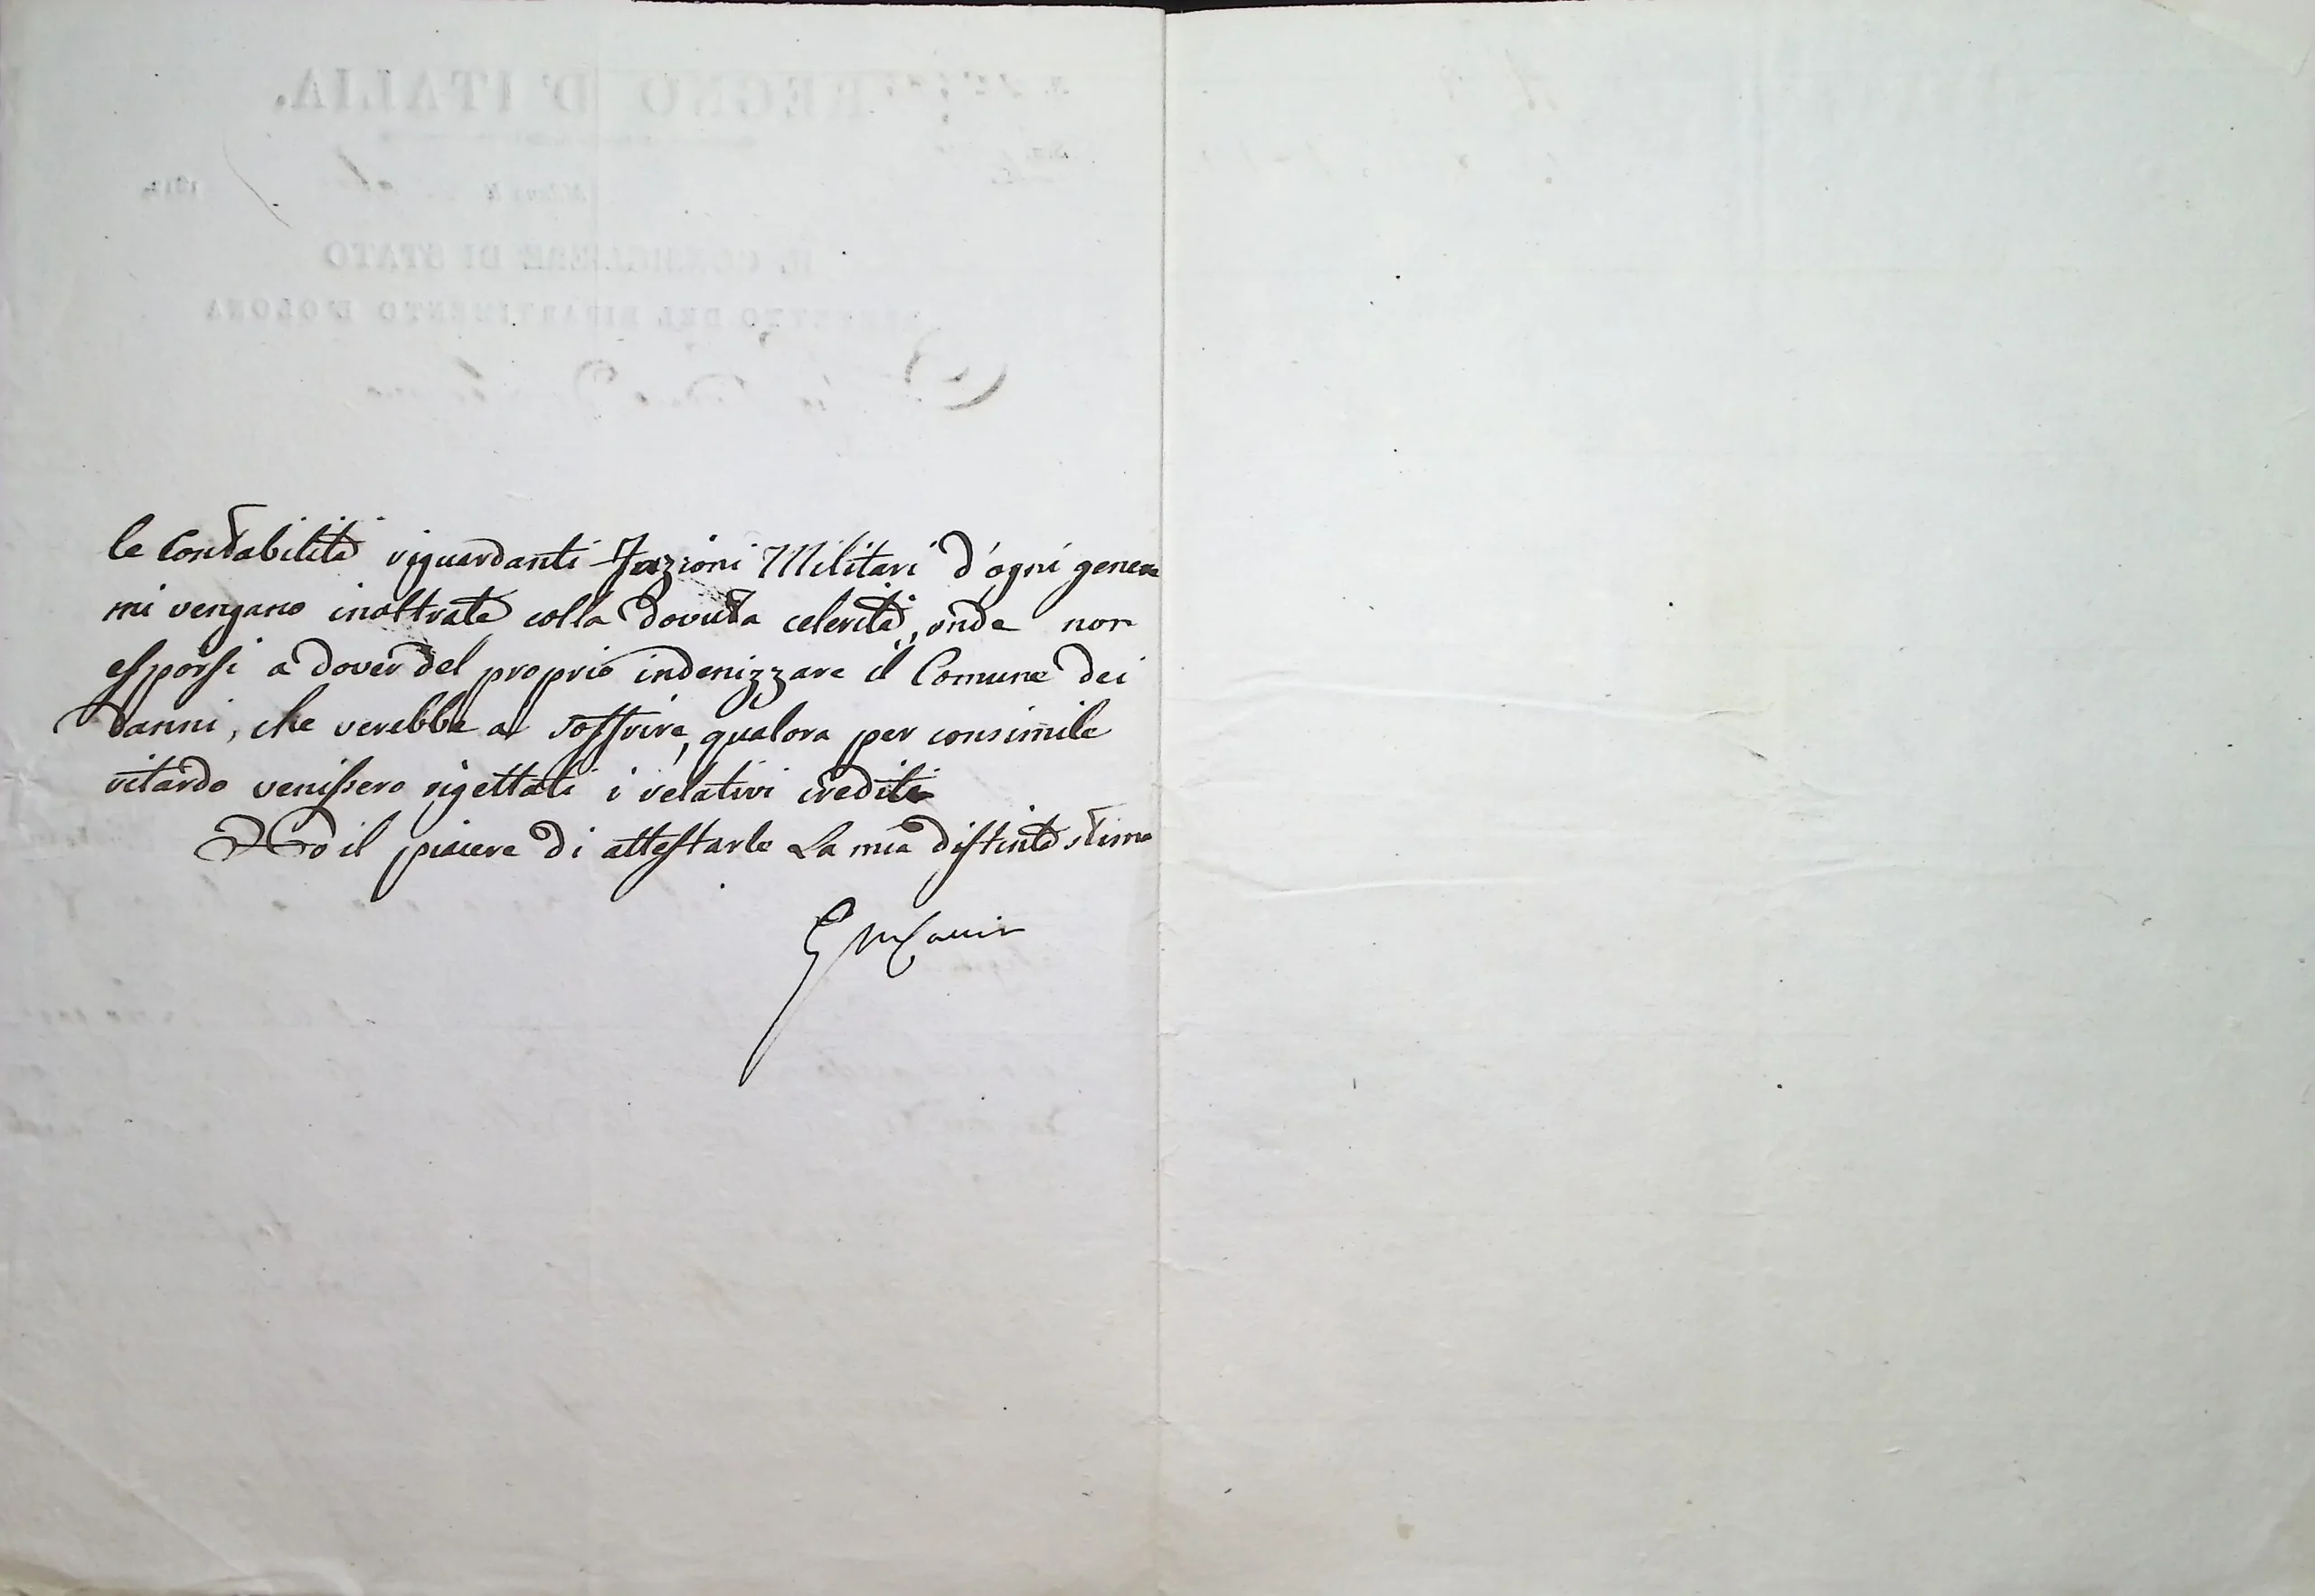 le Contabilità riguardanti Fazioni Militari d'ogni genere
mi vengano inoltrate colla dovuta celerità, onde non
esporsi a dover del proprio indenizzare il Comune dei
danni, che verebbe a soffrire, qualora per consimile
ritardo venissero rigettati i relativi crediti
Ho il piacere di attestarle La mia distinta stima
REGNO D'ITALIA.
IL CONSIGLIERE DI STATO
DEL DIPARTIMENTO D'OLONA